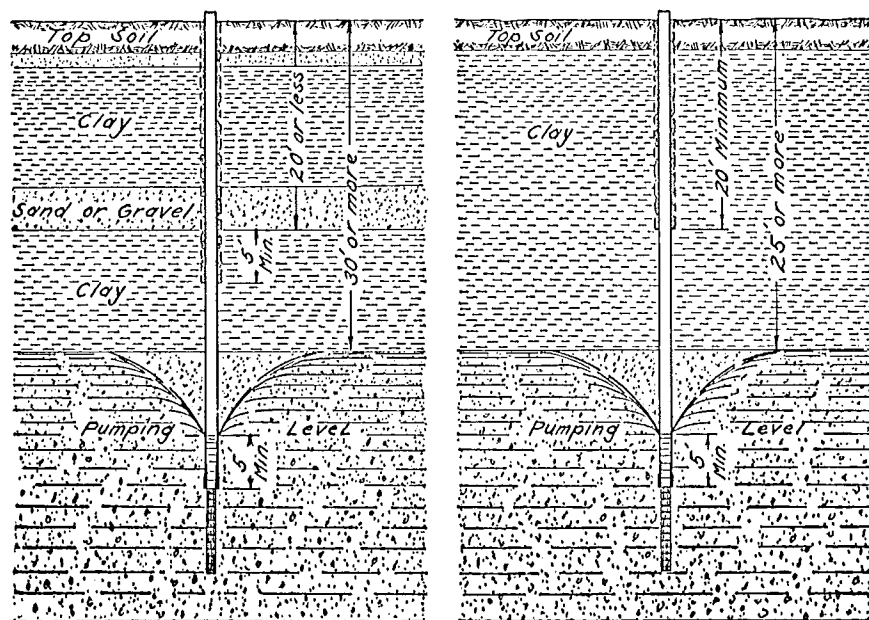 Top Soil
Clay
Sand or Gravel
Clay
20' or less
30' or more
5' Min.
Pumping Level
5' Min.
Top Soil
Clay
20' Minimum
25' or more
Pumping Level
5' Min.